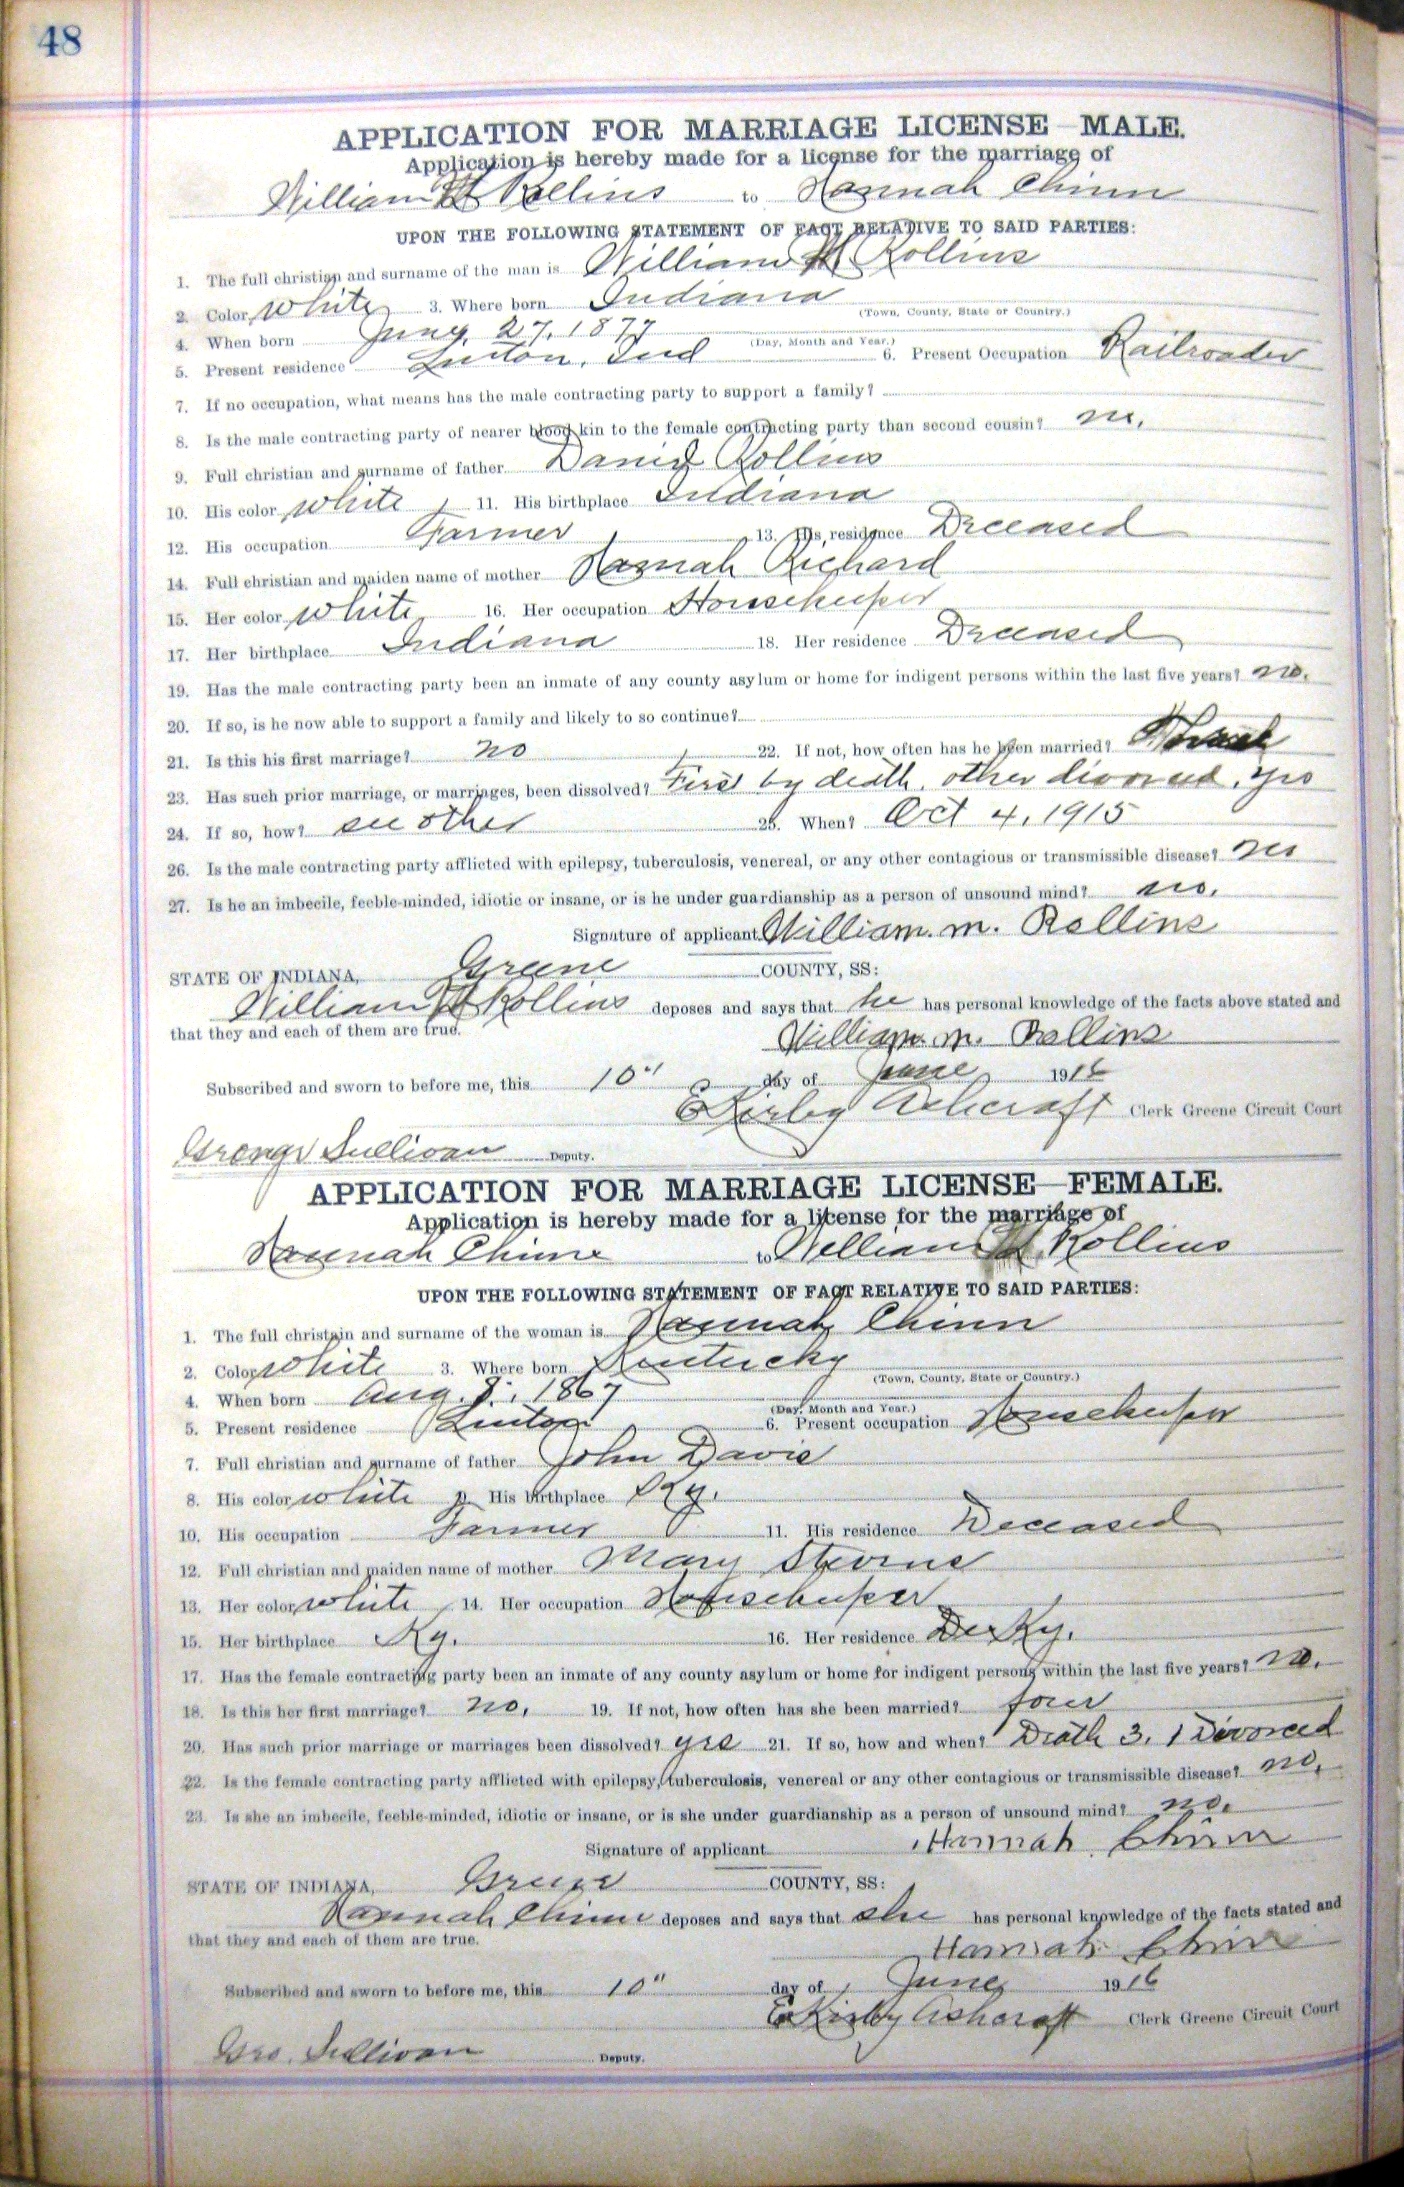 48
APPLICATION FOR MARRIAGE LICENSE—MALE.
Application is hereby made for a license for the marriage of
William M Rollins to Hannah Chinn
UPON THE FOLLOWING STATEMENT OF FACT RELATIVE TO SAID PARTIES:
1. The full christian and surname of the man is William M Rollins
2. Color, white 3. Where born Indiana (Town, County, State or Country.)
4. When born 27, 1877 (Day, Month and Year.)
5. Present residence Linton, Ind 6. Present Occupation Railroader
7. If no occupation, what means has the male contracting party to support a family?
8. Is the male contracting party of nearer blood kin to the female contracting party than second cousin? no.
9. Full christian and surname of father Daniel Rollins
10. His color white 11. His birthplace Indiana
12. His occupation Farmer 13. His residence Deceased
14. Full christian and maiden name of mother Hannah Richard
15. Her color white 16. Her occupation Housekeeper
17. Her birthplace Indiana 18. Her residence Deceased
19. Has the male contracting party been an inmate of any county asylum or home for indigent persons within the last five years? no.
20. If so, is he now able to support a family and likely to so continue?
21. Is this his first marriage? no 22. If not, how often has he been married?
23. Has such prior marriage, or marriages, been dissolved? First by death, other divorced, yes
24. If so, how? see other 25. When? Oct 4, 1915
26. Is the male contracting party afflicted with epilepsy, tuberculosis, venereal, or any other contagious or transmissible disease? no
27. Is he an imbecile, feeble-minded, idiotic or insane, or is he under guardianship as a person of unsound mind? no.
Signature of applicant William. m. Rollins
STATE OF INDIANA, Greene COUNTY, SS:
William M Rollins deposes and says that he has personal knowledge of the facts above stated and
that they and each of them are true.
William. m. Rollins
Subscribed and sworn to before me, this 10" day of June 1916
E Kirby Ashcraft Clerk Greene Circuit Court
George Sullivan Deputy.
APPLICATION FOR MARRIAGE LICENSE—FEMALE.
Application is hereby made for a license for the marriage of
Hannah Chinn to William M Rollins
UPON THE FOLLOWING STATEMENT OF FACT RELATIVE TO SAID PARTIES:
1. The full christain and surname of the woman is Hannah Chinn
2. Color, white 3. Where born Kentucky (Town, County, State or Country.)
4. When born Aug. 8, 1867 (Day, Month and Year.)
5. Present residence Linton 6. Present occupation Housekeeper
7. Full christian and surname of father John Davis
8. His color, white 9. His birthplace Ky.
10. His occupation Farmer 11. His residence Deceased
12. Full christian and maiden name of mother Mary
13. Her color, white 14. Her occupation Housekeeper
15. Her birthplace Ky. 16. Her residence Ky.
17. Has the female contracting party been an inmate of any county asylum or home for indigent persons within the last five years? no.
18. Is this her first marriage? no. 19. If not, how often has she been married? four
20. Has such prior marriage or marriages been dissolved? yes 21. If so, how and when? Death 3. 1 Divorced
22. Is the female contracting party afflicted with epilepsy, tuberculosis, venereal or any other contagious or transmissible disease? no.
23. Is she an imbecile, feeble-minded, idiotic or insane, or is she under guardianship as a person of unsound mind? no.
Signature of applicant Hannah Chinn
STATE OF INDIANA, Greene COUNTY, SS:
Hannah Chinn deposes and says that she has personal knowledge of the facts stated and
that they and each of them are true.
Hannah Chinn
Subscribed and sworn to before me, this 10" day of June 1916
E Kirby Ashcraft Clerk Greene Circuit Court
Geo. Sullivan Deputy.